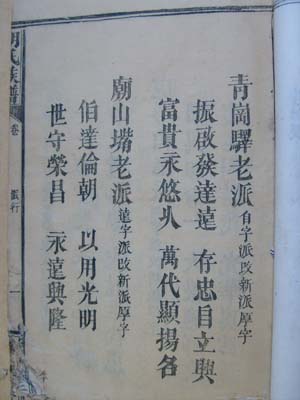 青崗驛老派 自字派改新派厚字
振啟發達遠 存忠目立興
富貴永悠久 萬代顯揚名
廟山老派 遠字派改新派厚字
伯達倫朝 以用光明
世守榮昌 永遠興隆
氏族譜 卷 行